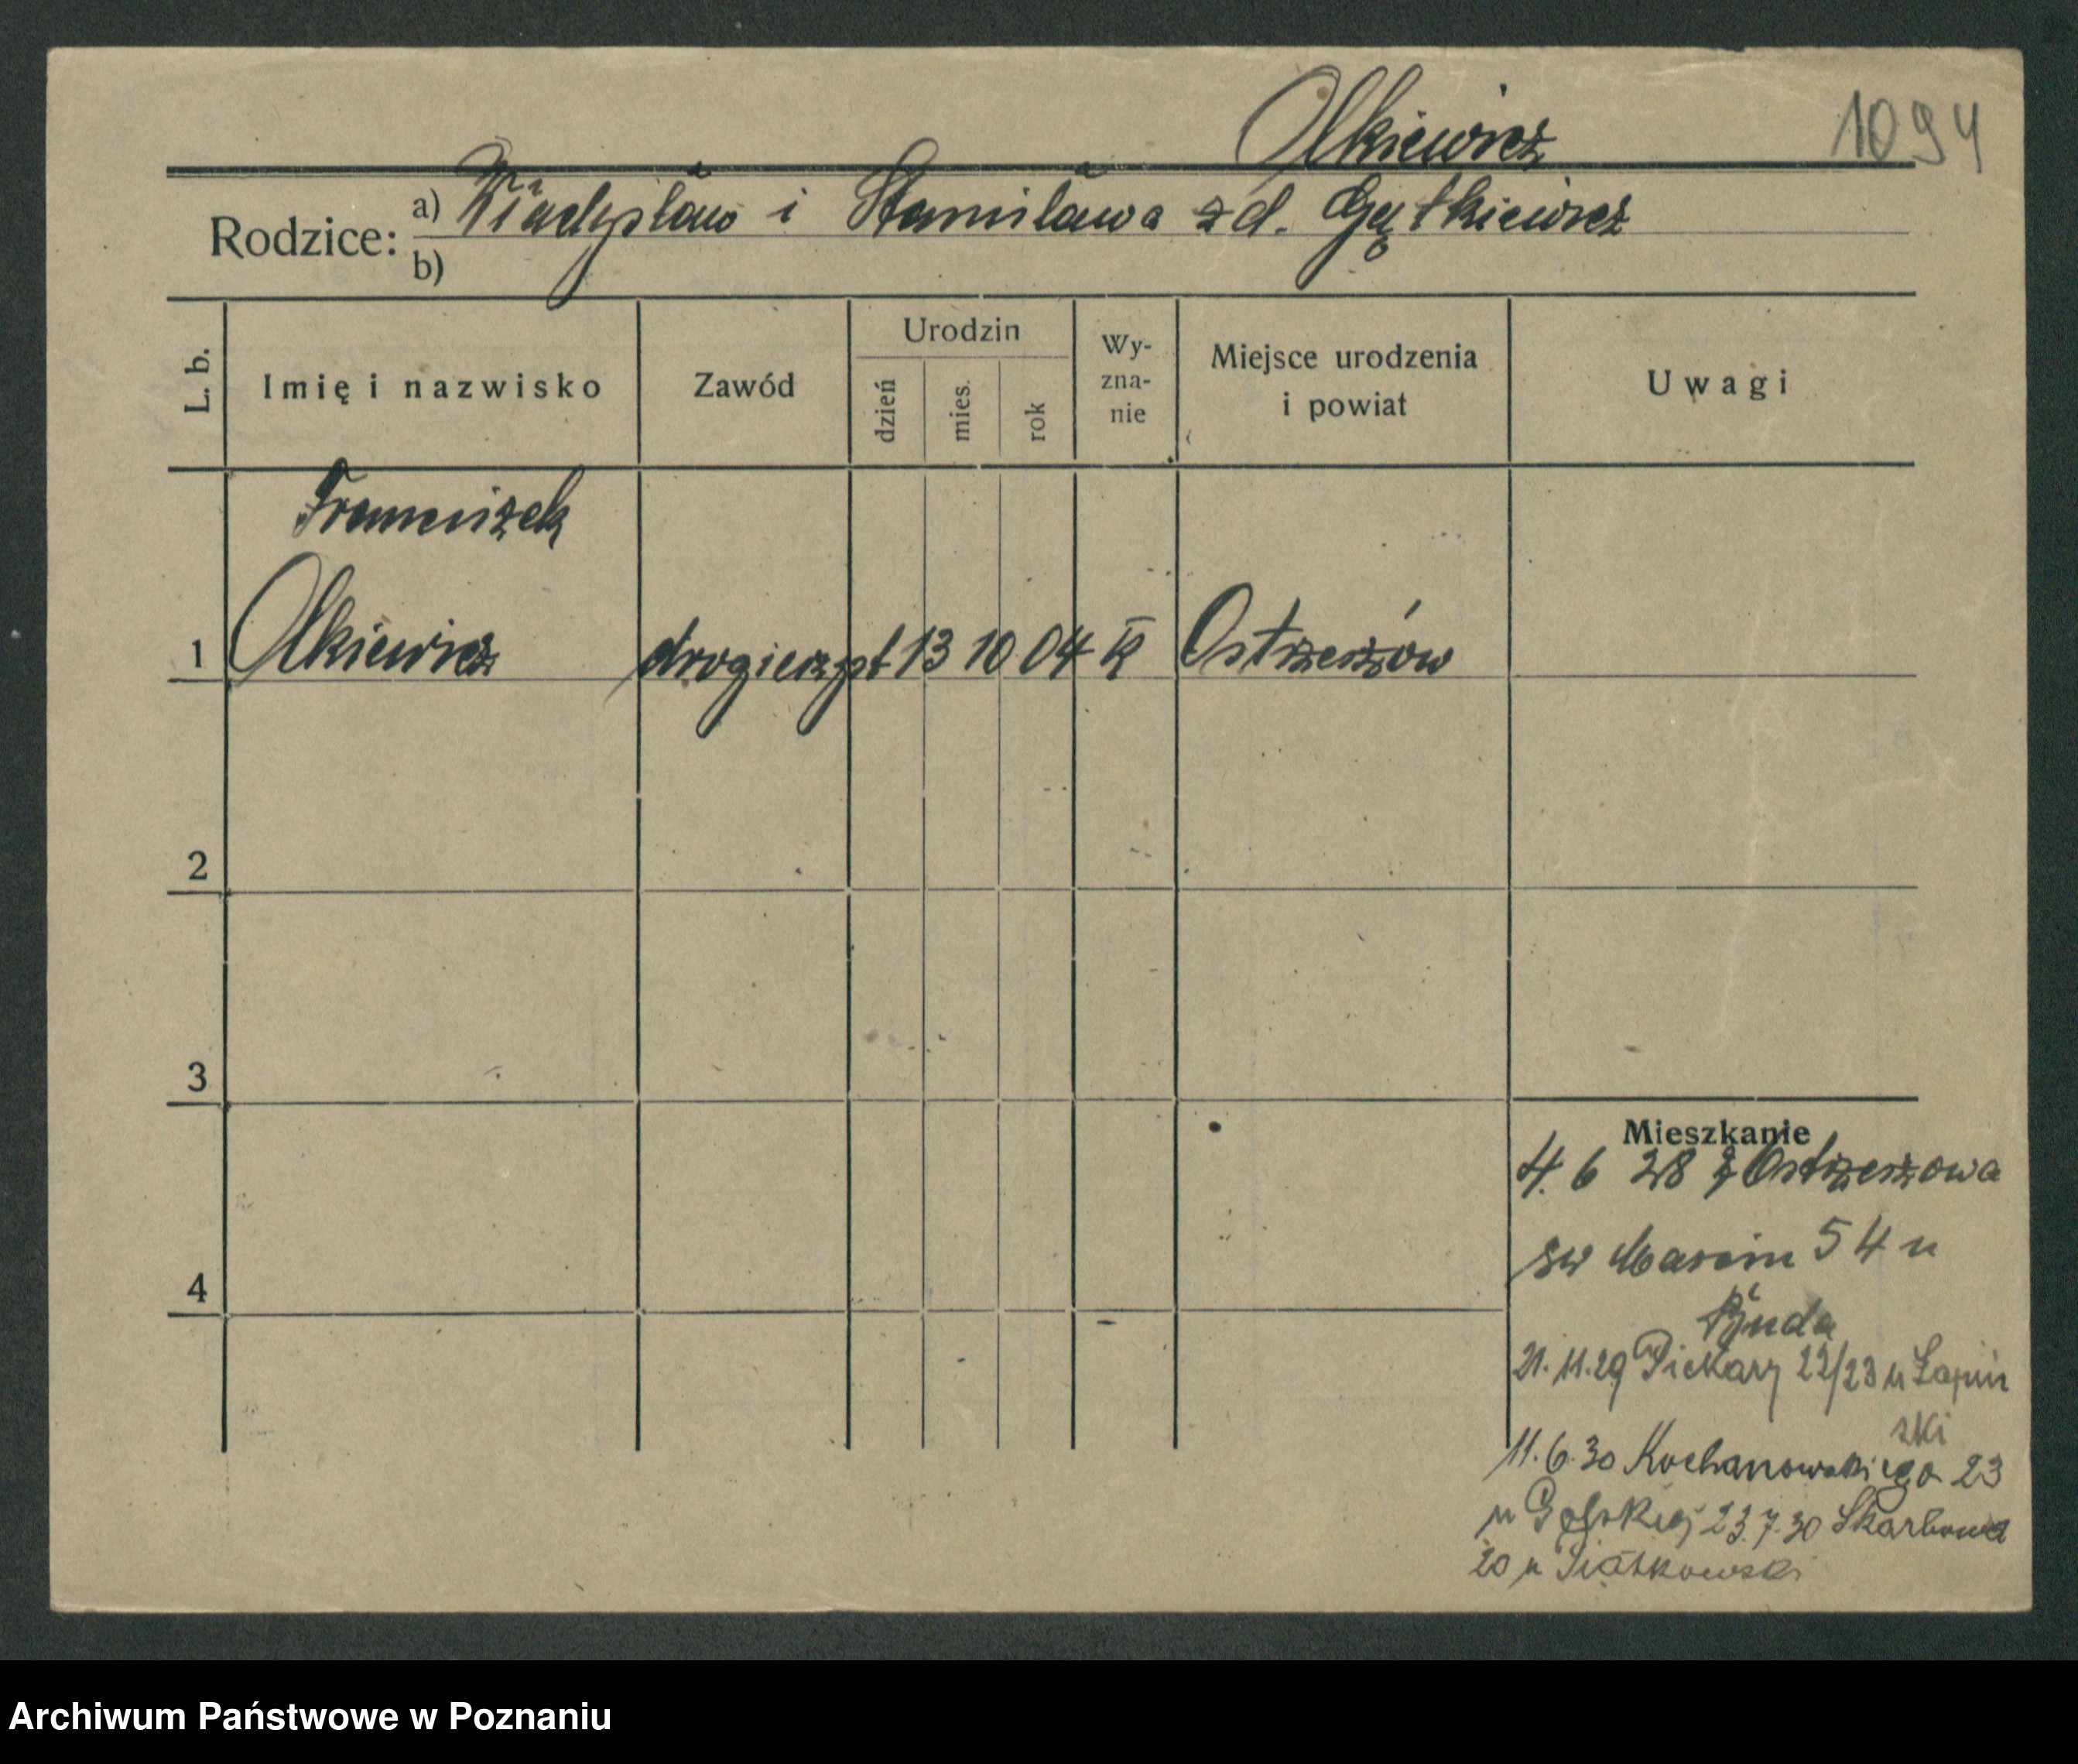 Olkiewicz 1094
Rodzice: a) Władysław i Stanisława z d. Gątkiewicz
b)
L. b. Imię i nazwisko Zawód Urodzin dzień mies. rok Wy-zna-nie Miejsce urodzenia i powiat Uwagi
Franciszek
1 Olkiewicz drogierzyst 13 10 04 K Ostrzeszów
2
3
Mieszkanie
4. 6 28 z Ostrzeszowa
św Marcin 54 u
4
21.11.29 Piekary 22/23 u Łapiń
ski
11.6.30 Kochanowskiego 23
u 23.7.30 Skarbowa
20 u Piątkowski
Archiwum Państwowe w Poznaniu